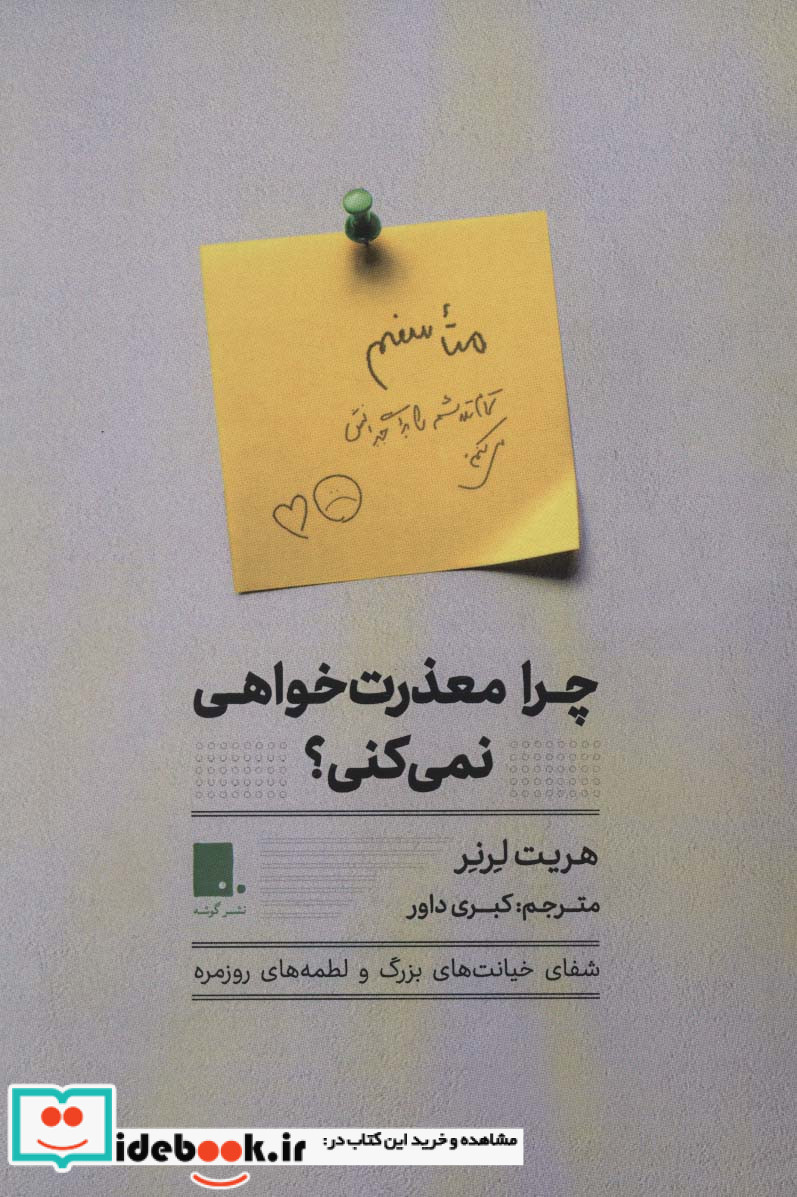 متأسفم
تمام تلاشم را برای جبرانش
می‌کنم.
چرا معذرت‌خواهی
نمی‌کنی؟
هریت لِرنِر
مترجم: کبری داور
نشر گوشه
شفای خیانت‌های بزرگ و لطمه‌های روزمره
مشاهده و خرید این کتاب در:
idebook.ir